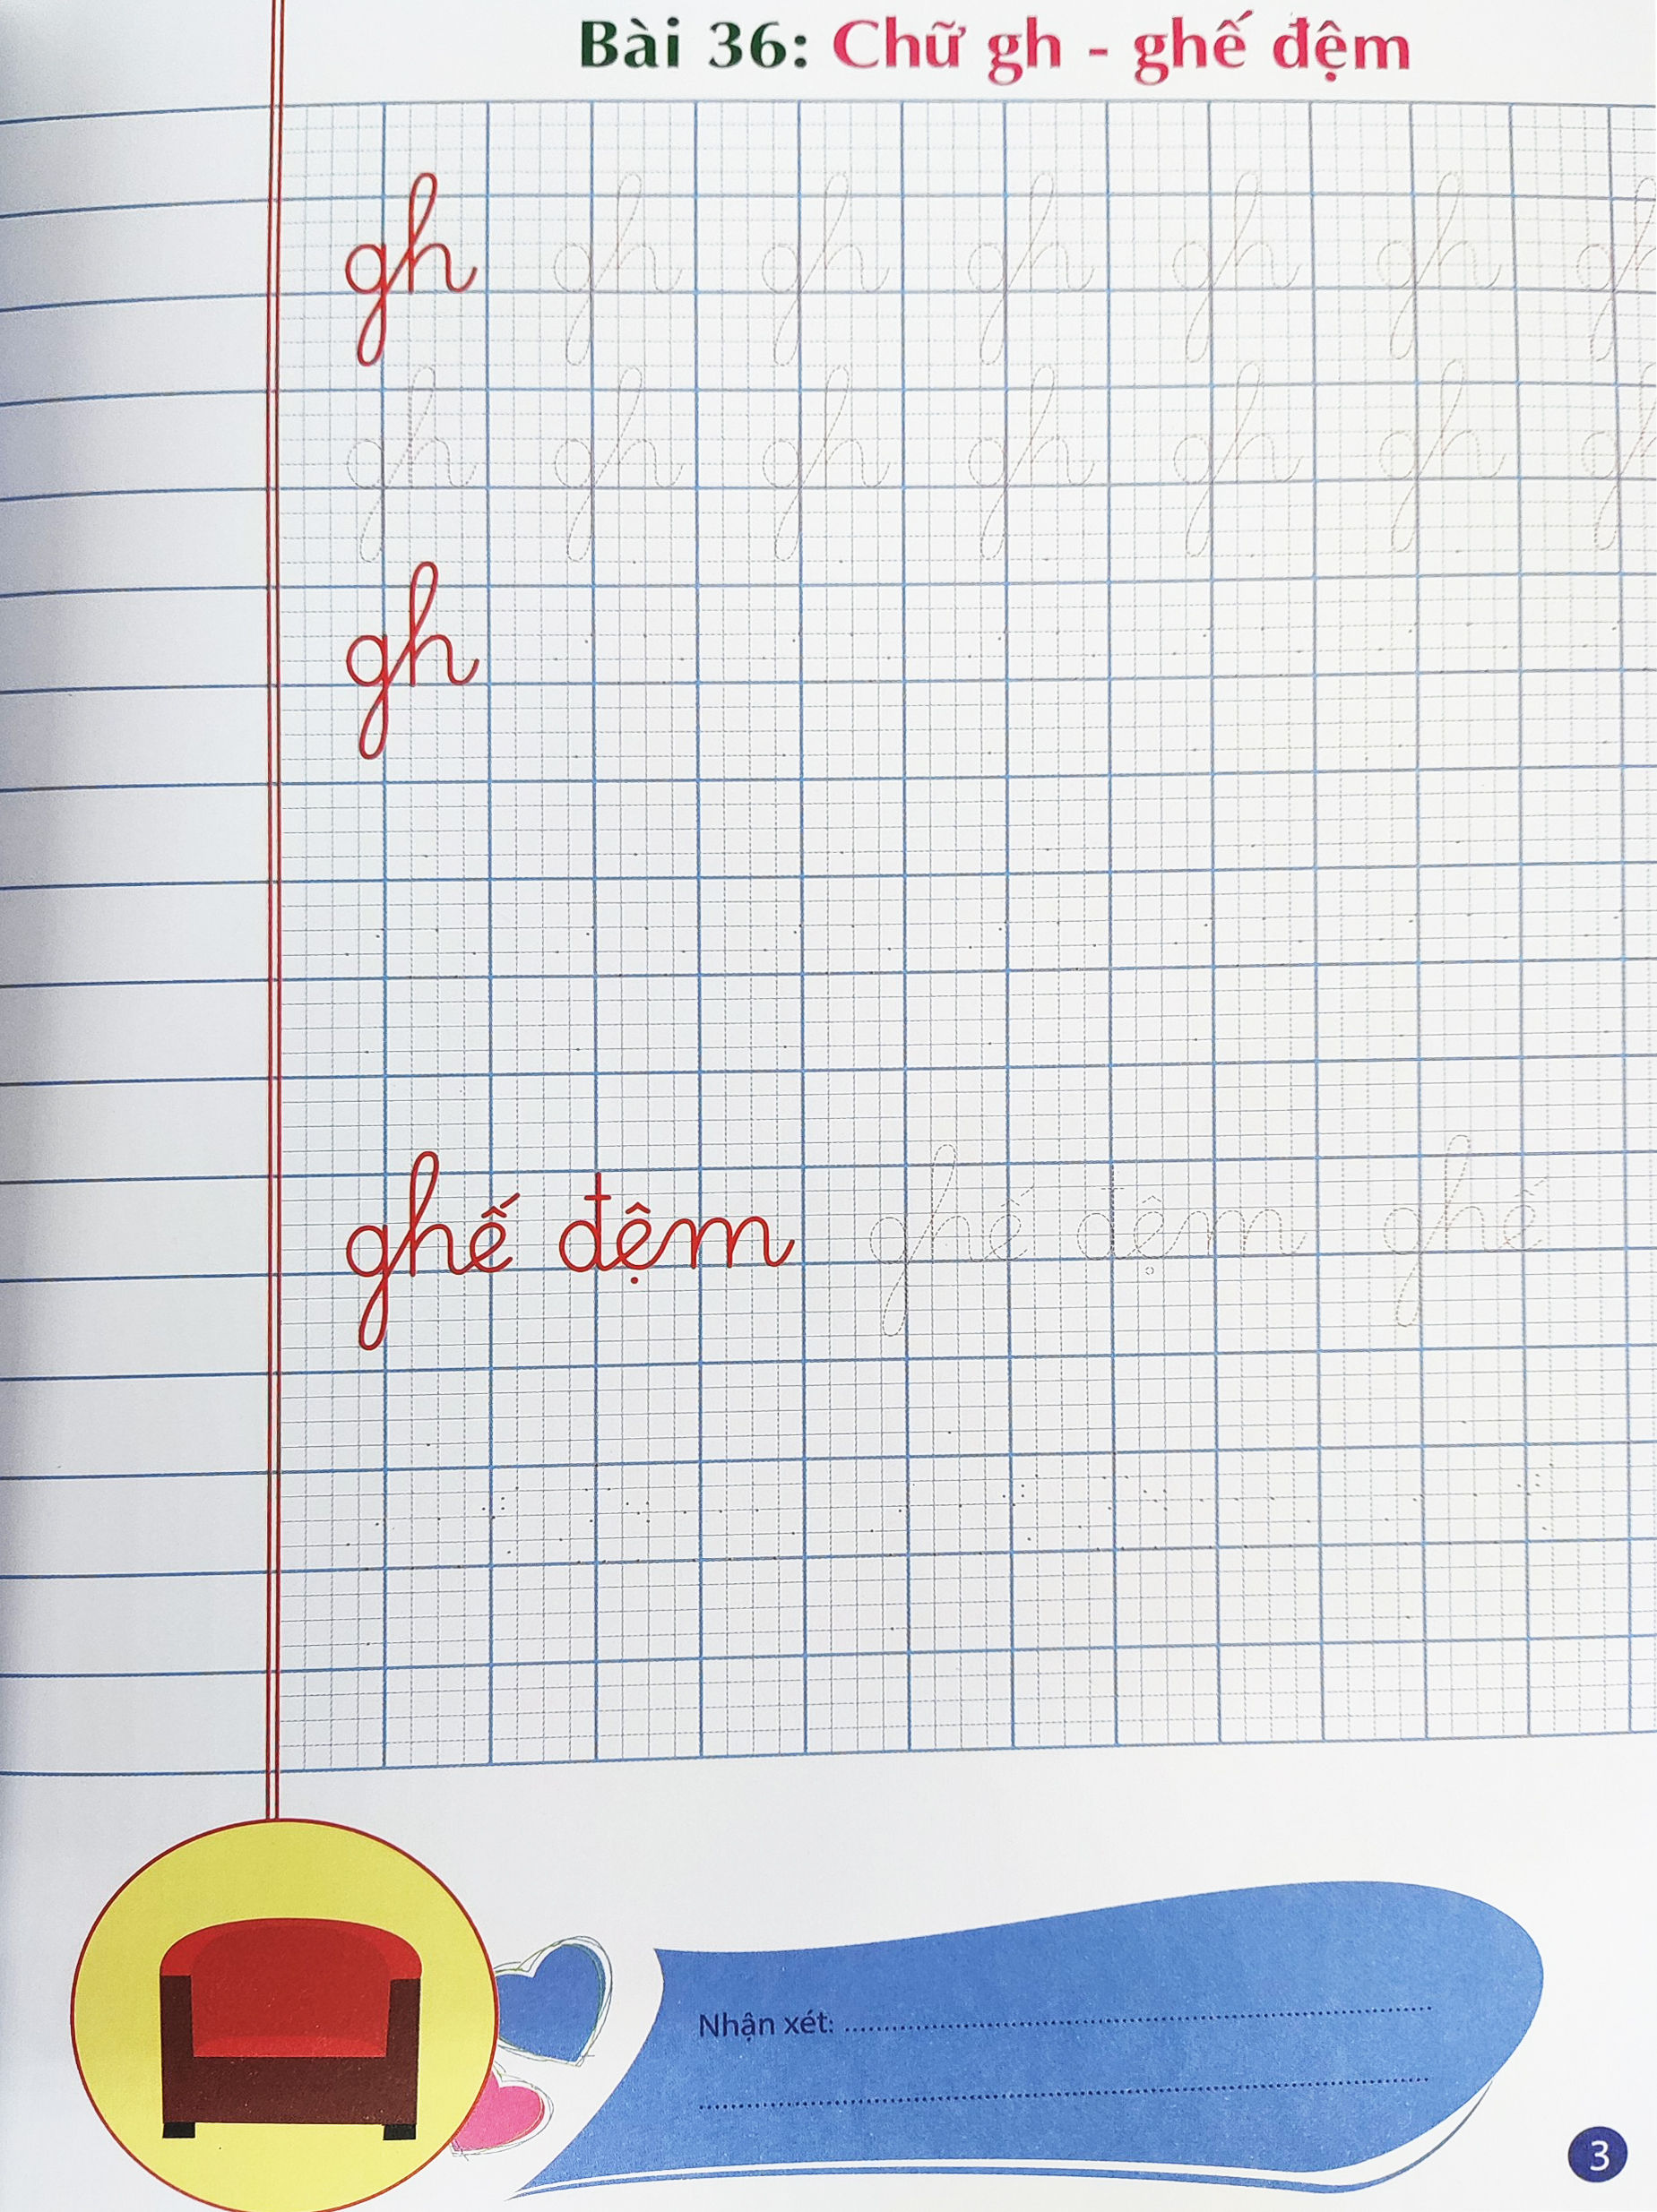 Bài 36: Chữ gh - ghế đệm
gh gh gh gh gh gh g
gh gh gh gh gh gh g
gh
ghế đệm ghế đệm ghế
Nhận xét:
3